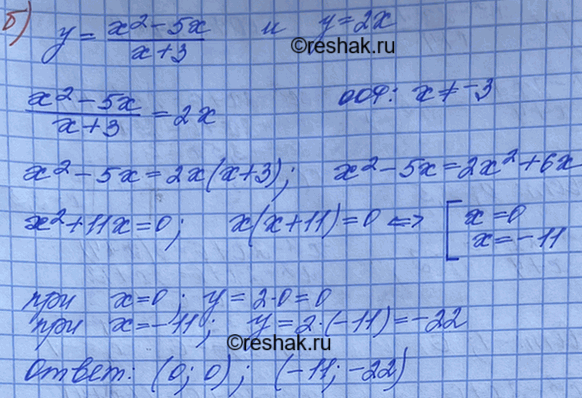 б) y = (x² - 5x)/(x + 3) и y = 2x
©reshak.ru
(x² - 5x)/(x + 3) = 2x ООФ: x ≠ -3
x² - 5x = 2x(x + 3); x² - 5x = 2x² + 6x
x² + 11x = 0; x(x + 11) = 0 ⇔ [x = 0
x = -11
при x = 0; y = 2·0 = 0
при x = -11; y = 2·(-11) = -22
©reshak.ru
Ответ: (0; 0); (-11; -22)